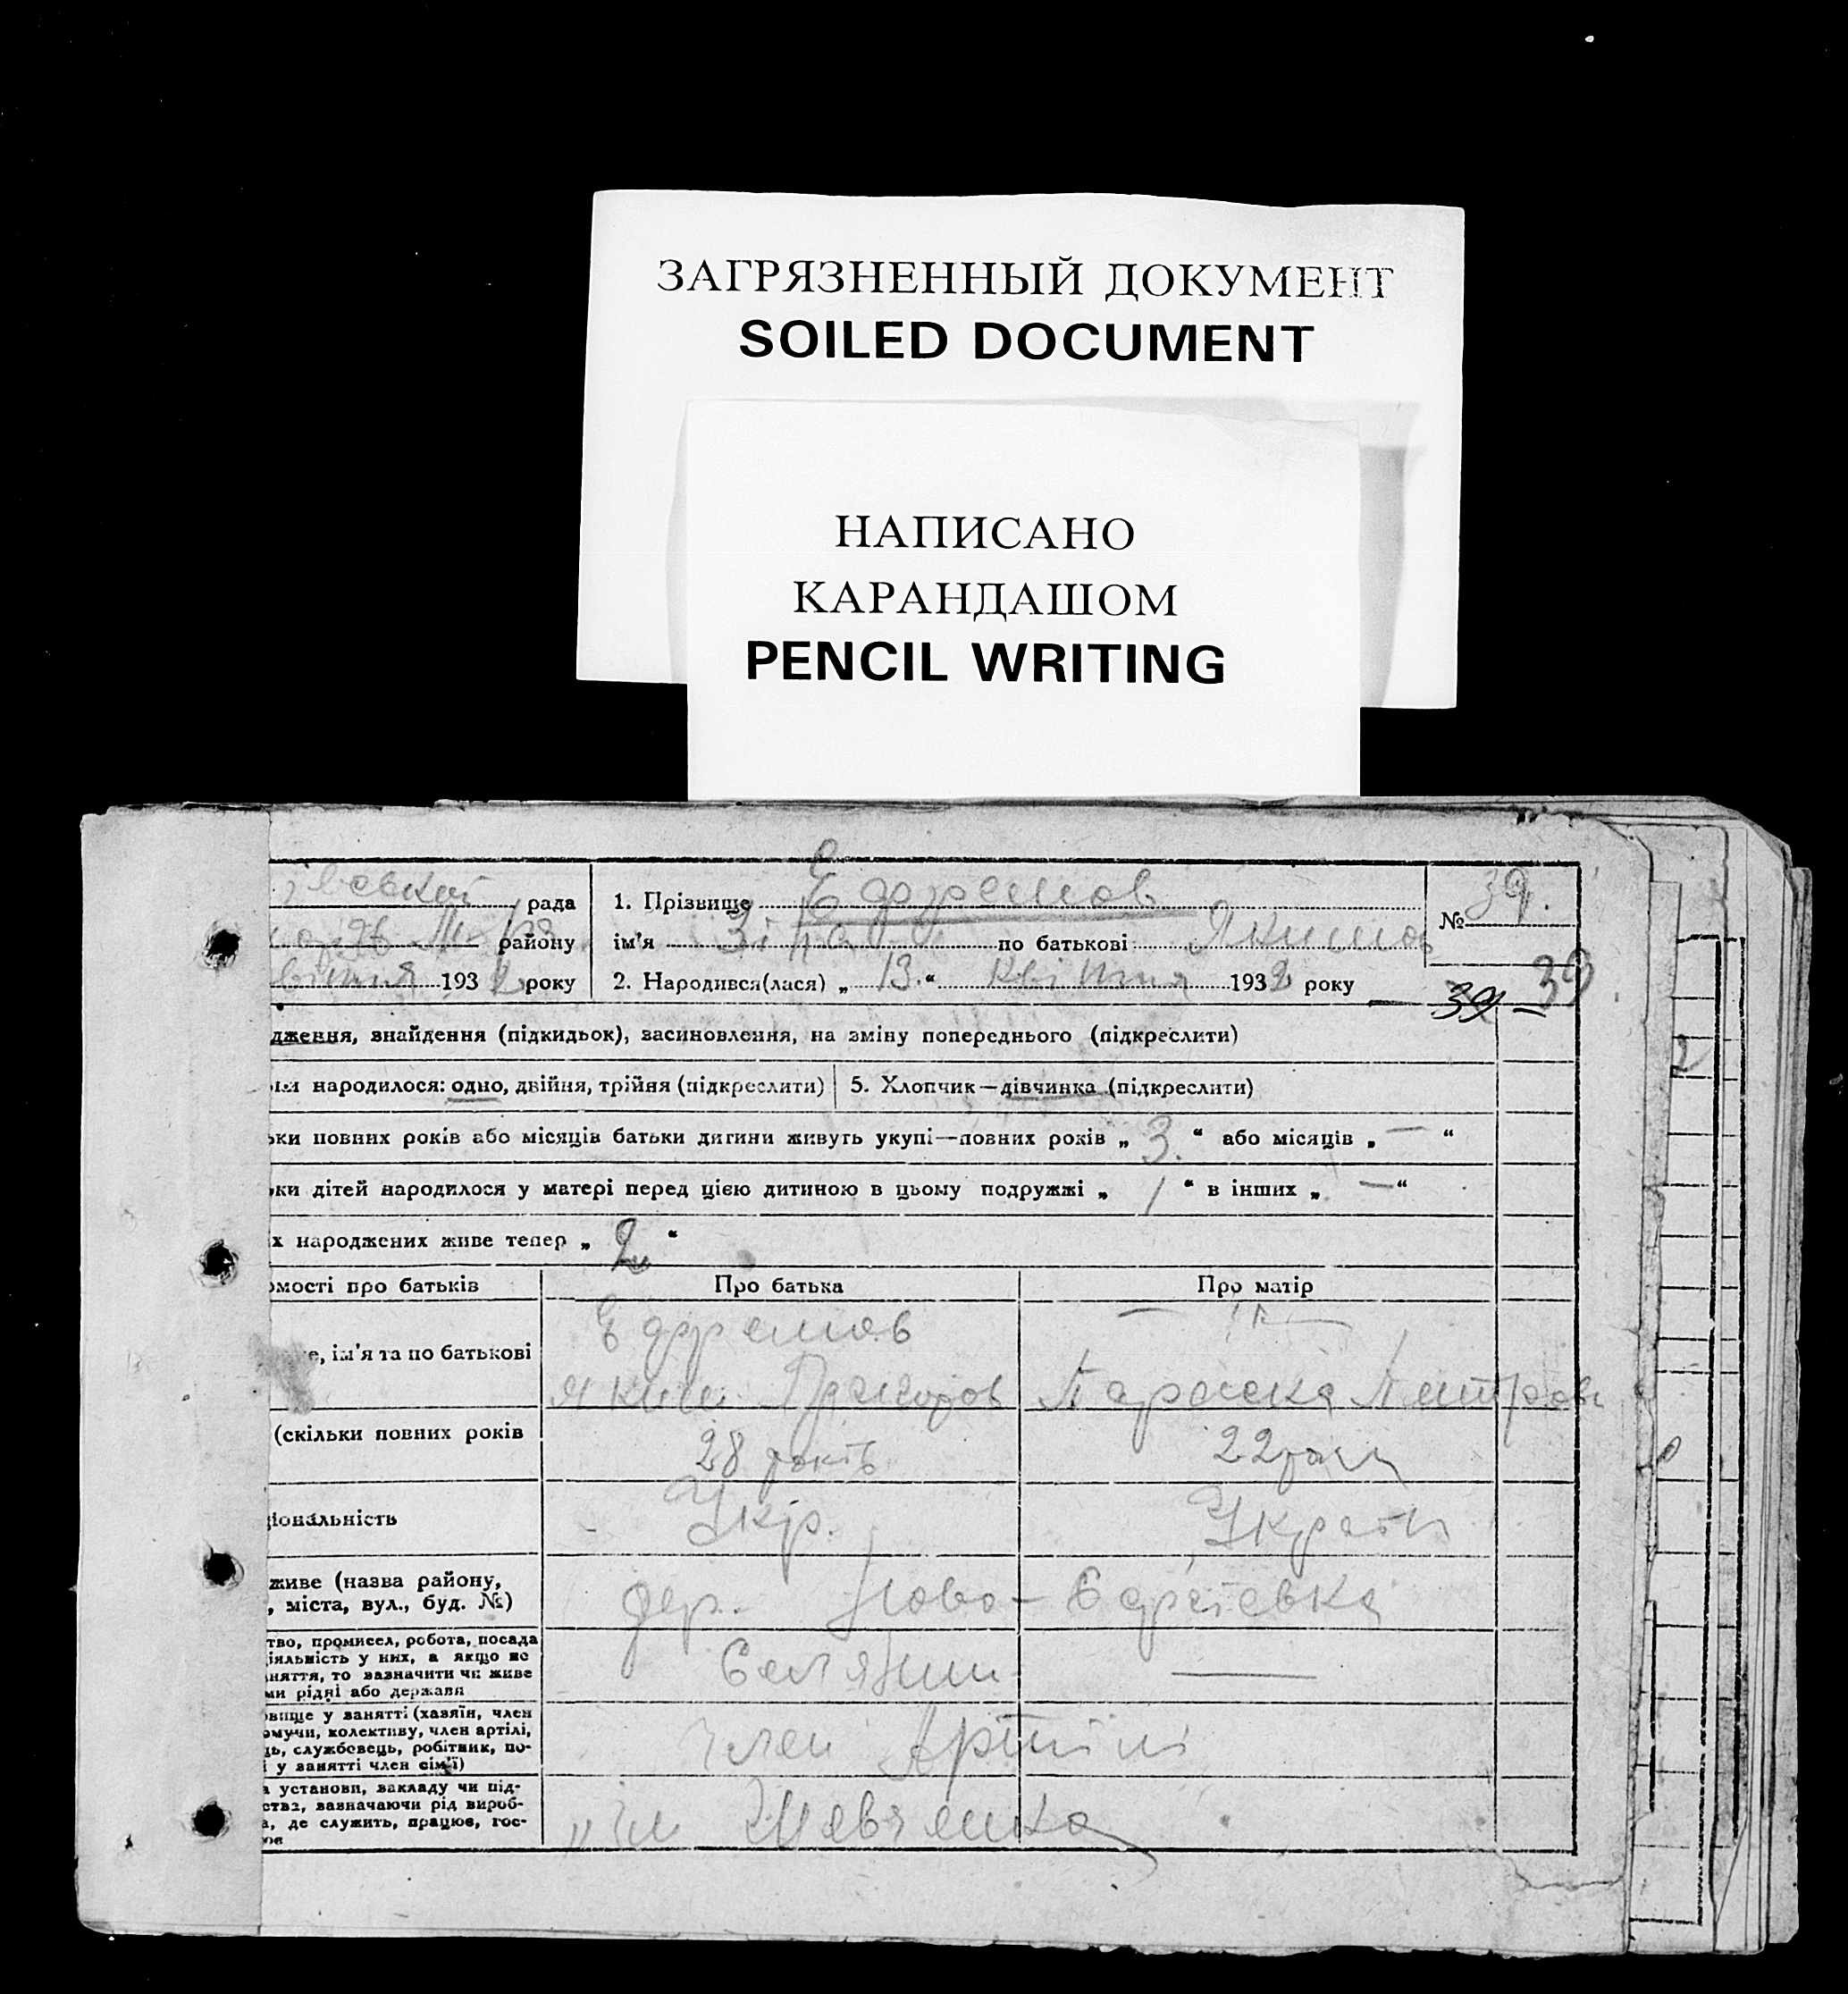 ЗАГРЯЗНЕННЫЙ ДОКУМЕНТ
SOILED DOCUMENT
НАПИСАНО
КАРАНДАШОМ
PENCIL WRITING
рада
району
193 2 року
1. Прізвище Ефремов
ім'я по батькові Якимов
2. Народився(лася) „ 13 “ квітня 1932 року
№ 39.
39 — 39
дження, знайдення (підкидьок), засиновлення, на зміну попереднього (підкреслити)
народилося: одно, двійня, трійня (підкреслити) 5. Хлопчик—дівчинка (підкреслити)
ьки повних років або місяців батьки дитини живуть укупі—повних років „ 3 “ або місяців „ — “
ки дітей народилося у матері перед цією дитиною в цьому подружжі „ 1 “ в інших „ — “
х народжених живе тепер „ 2 “
омості про батьків Про батька Про матір
Ефремов — „ —
е, ім'я та по батькові
Яким Параска
(скільки повних років 28 років 22 роки
ціональність Укр.
живе (назва району,
, міста, вул., буд. №) дер. Ново-
тво, промисел, робота, посада
іяльність у них, а якщо не
няття, то зазначити чи живе
ми рідні або держави
Селянин —
вище у занятті (хазяїн, член
омучи, колективу, член артілі,
ць, службовець, робітник, по-
і у занятті член сім'ї)
член Артілі
а установи, закладу чи під-
ства, зазначаючи рід вироб-
а, де служить, працює, гос-
ює
„Ім Шевченка